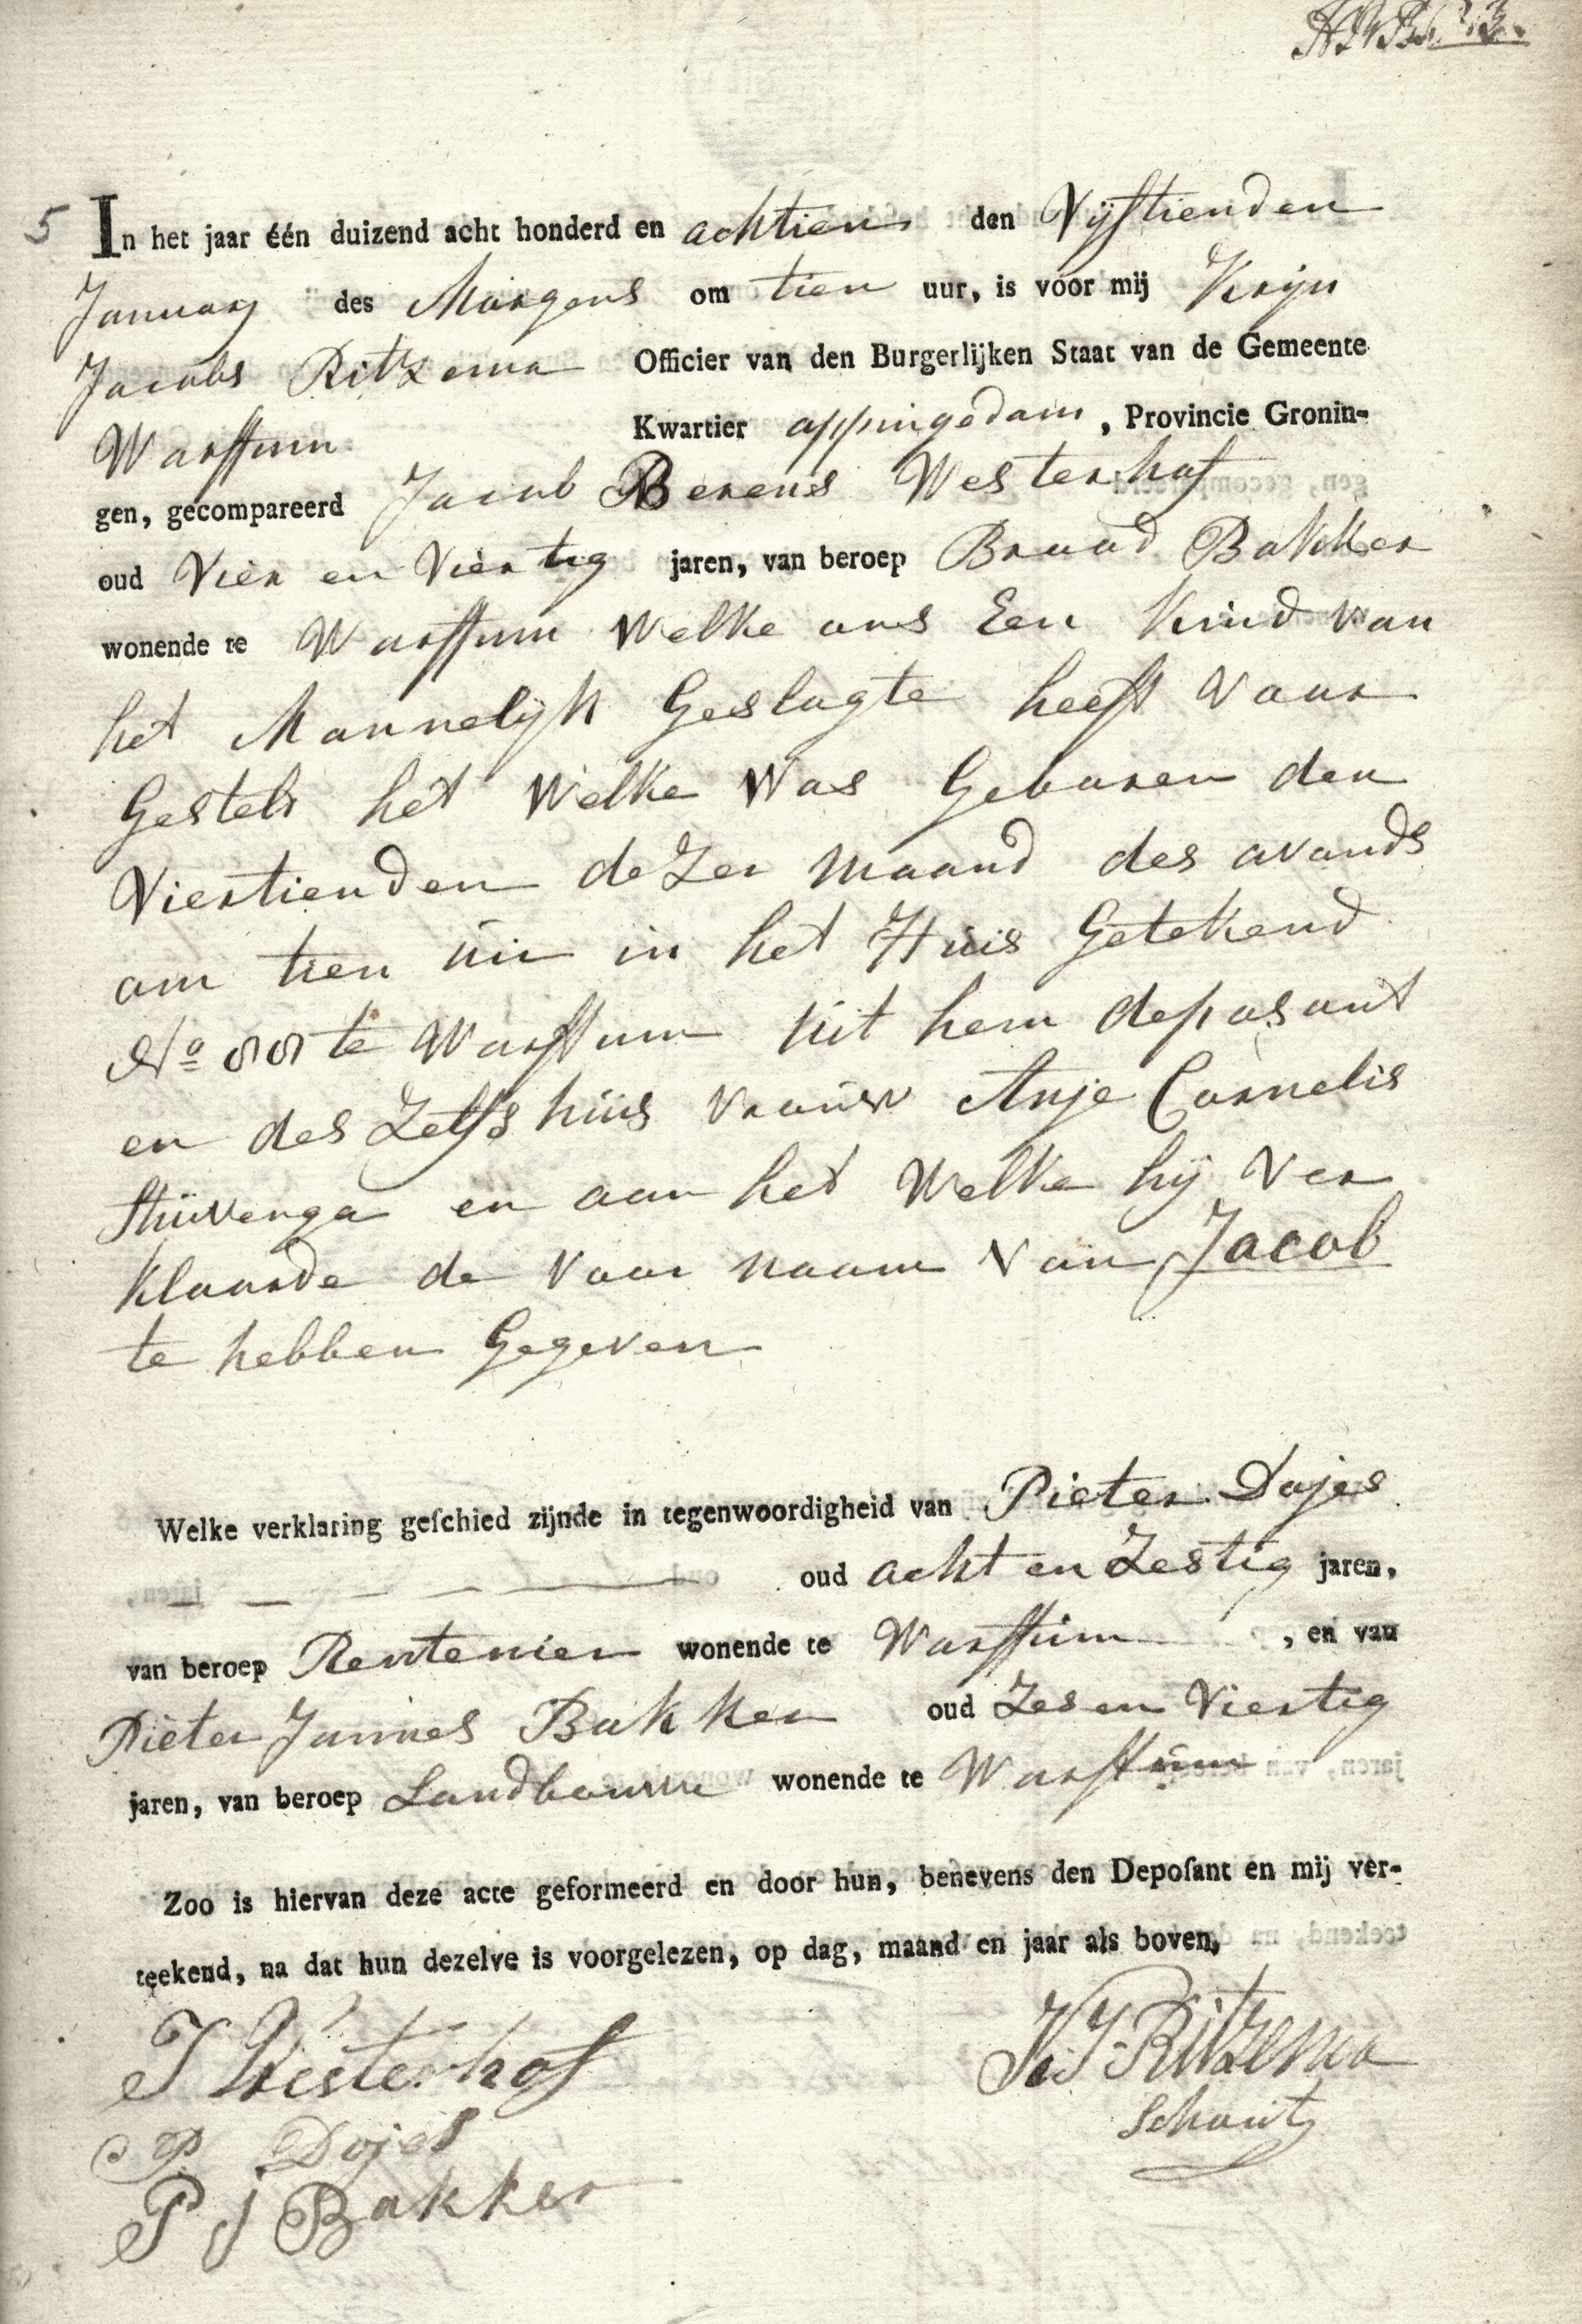 5 In het jaar één duizend acht honderd en achtien den Vijftienden
January des Morgens om tien uur, is voor mij Krijn
Jacobs Ritzema Officier van den Burgerlijken Staat van de Gemeente
Warffum Kwartier appingedam, Provincie Gronin-
gen, gecompareerd Jacob Berens Westerhof
oud Vier en Viertig jaren, van beroep Brood Bakker
wonende te Warffum Welke ons Een Kind van
het Mannelijk Geslagte heeft Voor
Gestelt het Welke Was Geboren den
Viertienden dezer Maand des avonds
om tien uir in het Huis Getekend
No te Warffum uit hem deposant
en des Zelfs huis vrouw Anje Cornelis
Stuivenga en aan het Welke hij Ver
Klaarde de Voor naam Van Jacob
te hebben Gegeven
Welke verklaring geſchied zijnde in tegenwoordigheid van Pieter Dojes
oud acht en Zestig jaren,
van beroep Rentenier wonende te Warffum, en van
Pieter Jannes Bakker oud Zes en Viertig
jaren, van beroep Landbouwer wonende te Warffum
Zoo is hiervan deze acte geformeerd en door hun, benevens den Depoſant en mij ver-
teekend, na dat hun dezelve is voorgelezen, op dag, maand en jaar als boven,
J Westerhof
K. J. Ritzema
Schout
P Dojes
P J Bakker